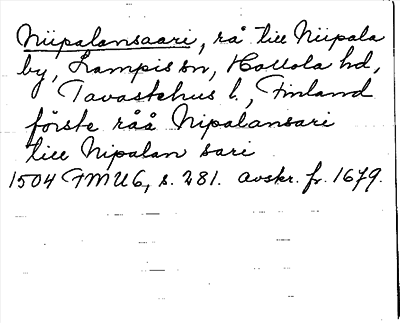 Niipalansaari, rå till Niipala
by, Lampis sn, Hollola hd,
Tavastehus l., Finland
förste råå Nipalansari
till Nipalan sari
1504 FMU6, s. 281. avskr. fr. 1679.